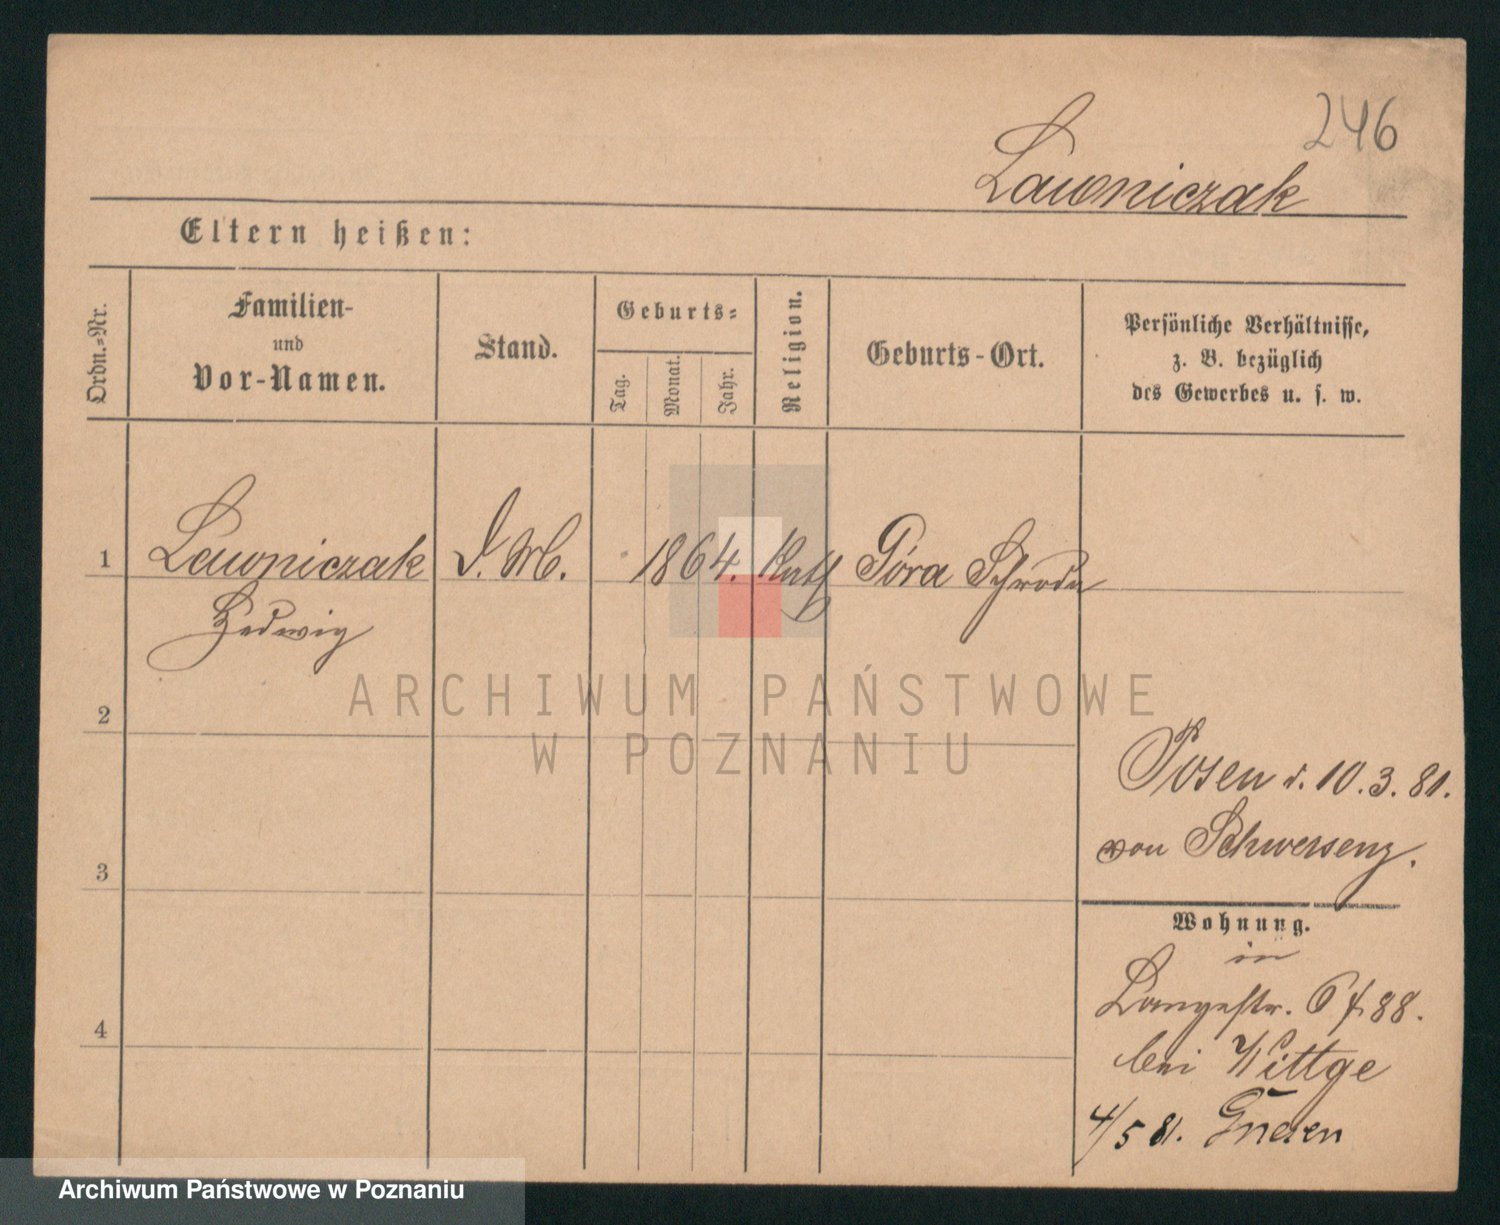 246
Lawniczak
Eltern heißen:
Ordn.=Nr.
Familien-
und
Vor-Namen.
Stand.
Geburts=
Tag.
Monat.
Jahr.
Religion.
Geburts-Ort.
Persönliche Verhältnisse,
z. B. bezüglich
des Gewerbes u. s. w.
1 Lawniczak D. M. 1864. Kath Góra Schroda
Hedwig
2
3
4
Posen d. 10. 3. 81.
von Schwersenz.
Wohnung.
in
Langestr. 6 f. 88.
bei Wittge
4/5 81. Gnesen
ARCHIWUM PAŃSTWOWE
W POZNANIU
Archiwum Państwowe w Poznaniu